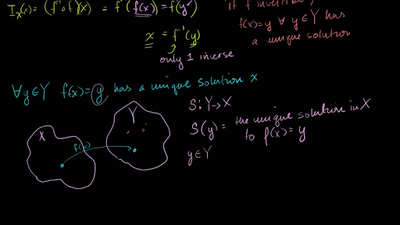 I_X(x) = (f⁻¹∘f)(x) = f⁻¹(f(x)) = f⁻¹(y)
if f invertible
f(x)=y ∀ y∈Y has
a unique solution
x = f⁻¹(y)
only 1 inverse
∀y∈Y f(x)=y has a unique solution x
S: Y→X
S(y) = the unique solution in X
to f(x)=y
y∈Y
X
f(x)
Y